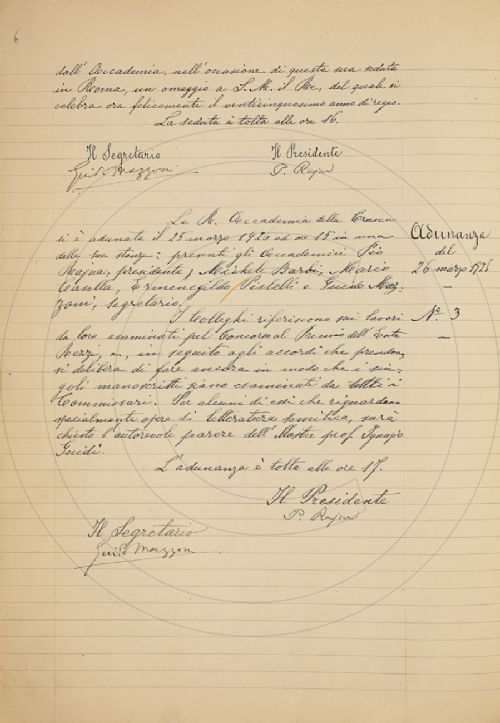 6
dall' Accademia, nell'occasione di questa sua seduta
in Roma, un omaggio a S. M. il Re, del quale si
celebra ora felicemente il venticinquesimo anno di regno.
La seduta è tolta alle ore 16.
Il Segretario Il Presidente
Guido Mazzoni P. Rajna
La R. Accademia della Crusca
si è adunata il 25 marzo 1925 ad ore 15 in una
delle sue stanze: presenti gli Accademici Pio
Rajna, presidente, Michele Barbi, Mario
Casella, Ermenegildo Pistelli e Guido Maz-
zoni, segretario.
Adunanza
del
26 marzo 1925
—
N.º 3
—
I Colleghi riferiscono sui lavori
da loro esaminati pel Concorso al Premio dell'Ente
Rezzi, e, in seguito agli accordi che prendono,
si delibera di fare ancora in modo che i sin-
goli manoscritti siano esaminati da tutti i
Commissari. Per alcuni di essi che riguardano
specialmente opere di letteratura semitica, sarà
chiesto l'autorevole parere dell' prof. Ignazio
Guidi.
L'adunanza è tolta alle ore 17.
Il Presidente
P. Rajna
Il Segretario
Guido Mazzoni